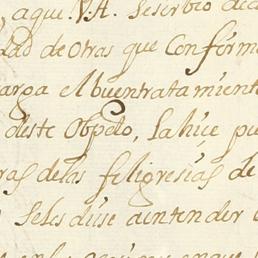 , aque V.A. Seserbio de
dad de otras que Confórm
arga el buentratamient
deste Obpdo, La hiçe pu
ras de las filigresias de
Seles diese aintender